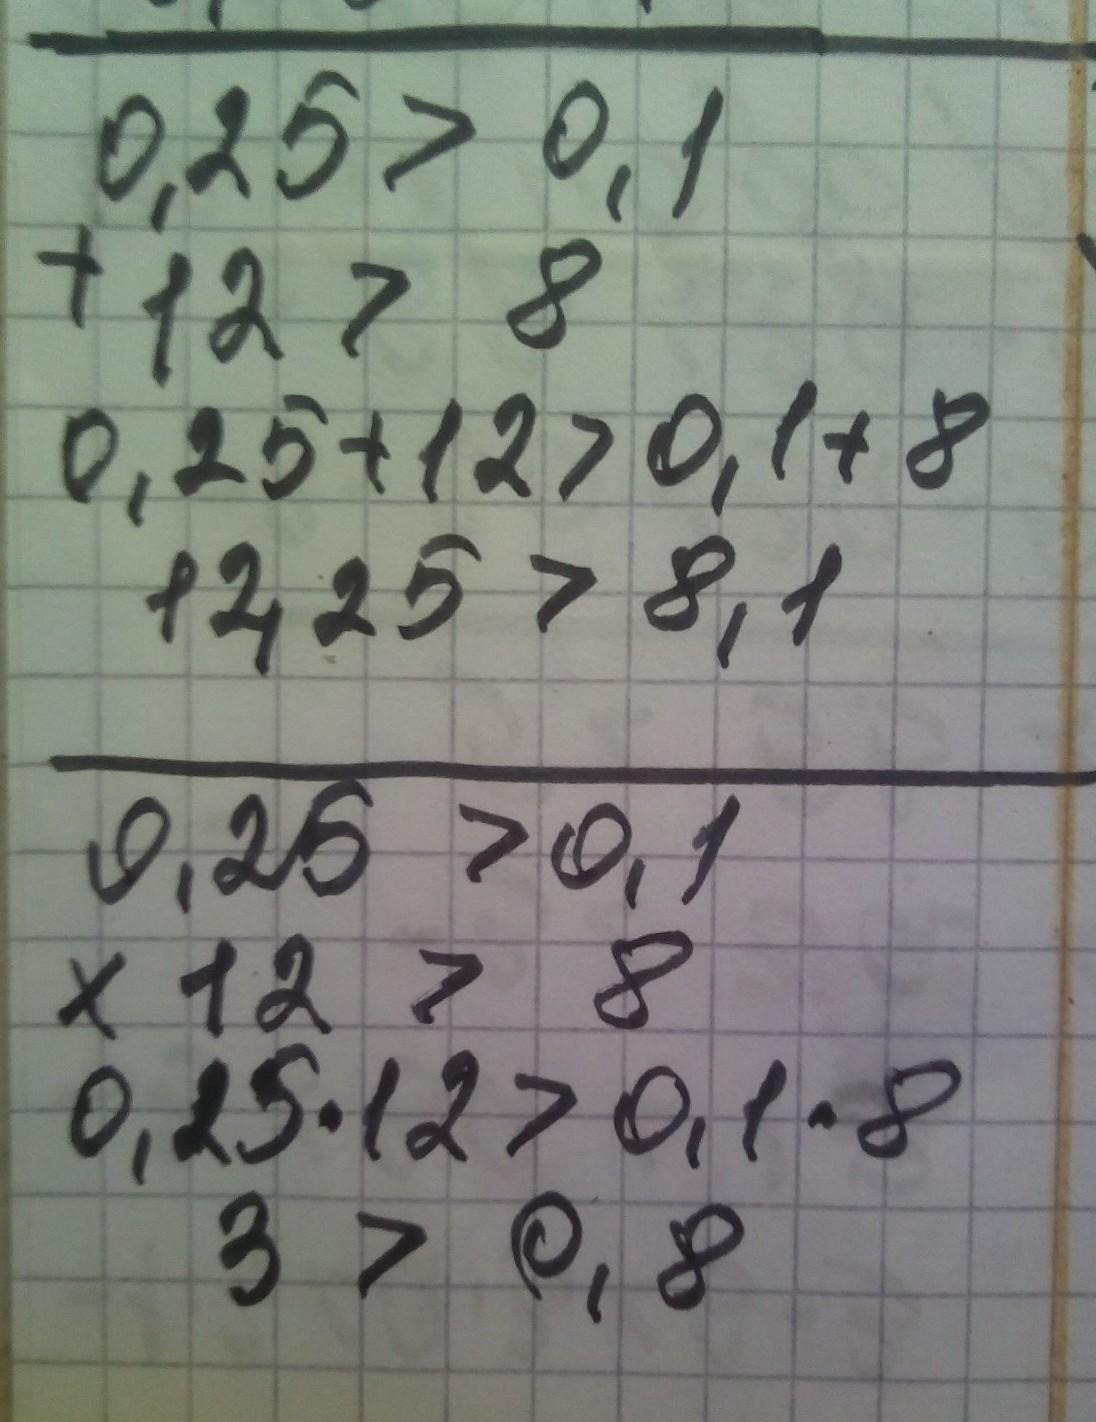 0,25 > 0,1
+ 12 > 8
0,25+12>0,1+8
12,25 > 8,1
0,25 > 0,1
x 12 > 8
0,25·12>0,1·8
3 > 0,8